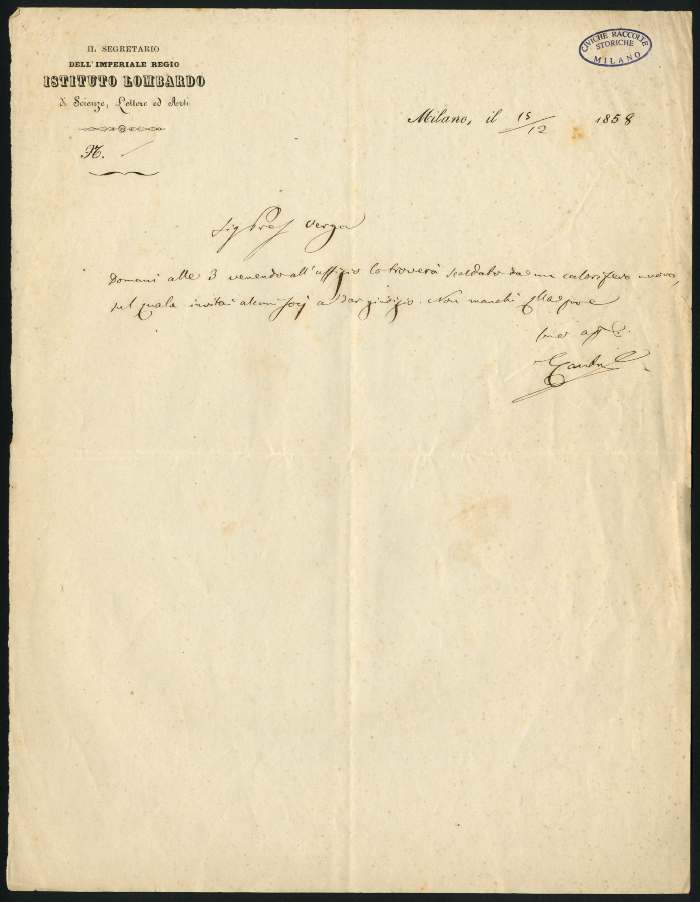 IL SEGRETARIO
DELL'IMPERIALE REGIO
ISTITUTO LOMBARDO
di Scienze, Lettere ed Arti
N.
CIVICHE RACCOLTE
STORICHE
MILANO
Milano, il 15/12 1858
Sig Prof Verga
Domani alle 3 venendo all'uffizio lo troverà scaldato da un calorifero nuovo,
sul quale invitai alcuni socj a dar giudizio. Non manchi Ella pure
Suo aff